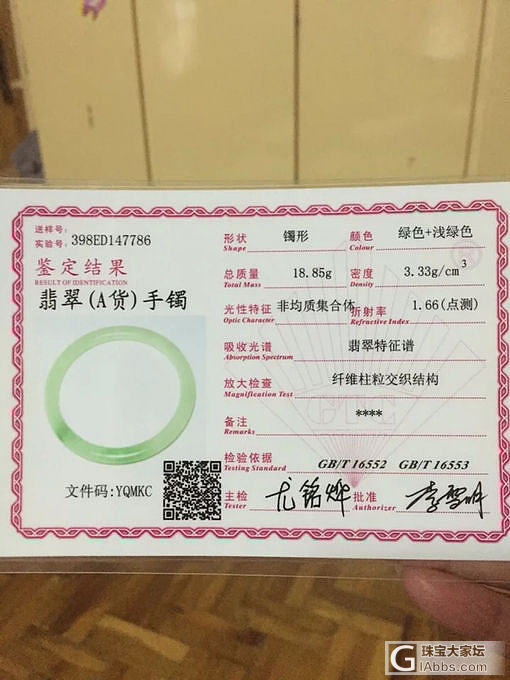 送样号:
实验号: 398ED147786
鉴定结果
RESULT OF IDENTIFICATION
翡翠(A货)手镯
文件码:YQMKC
形状 镯形 颜色 绿色+浅绿色
Shape Colour
总质量 18.85g 密度 3.33g/cm3
Total Mass Density
光性特征 非均质集合体 折射率 1.66(点测)
Optic Character Refractive Index
吸收光谱 翡翠特征谱
Absorption Spectrum
放大检查 纤维柱粒交织结构
Magnification Test
备注 ****
Remarks
检验依据 GB/T 16552 GB/T 16553
Testing Standard
主检 尤铭烨 批准 李雪明
Tester Authorizer
GTC
珠宝大家坛
GIAbbs.com